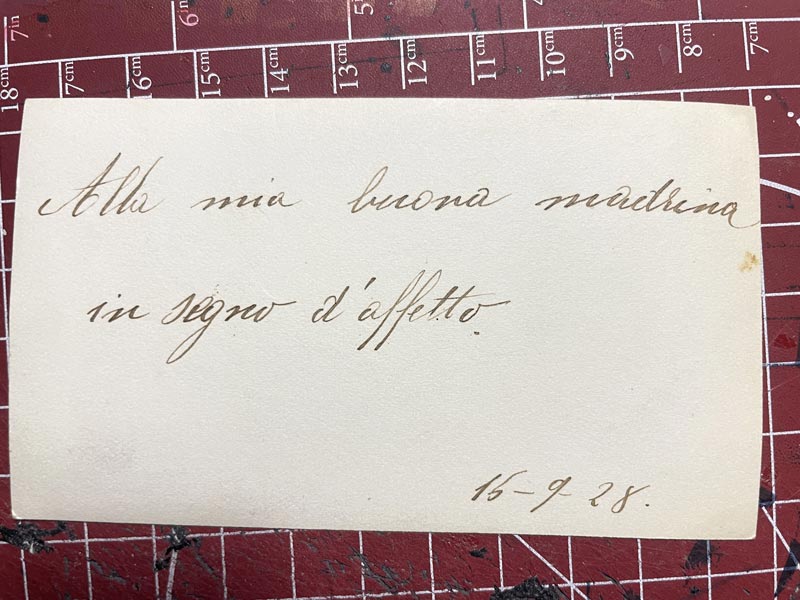 7in
6in
5in
4
18cm
7cm
16cm
15cm
14cm
13cm
12cm
11cm
10cm
9cm
8cm
7cm
Alla mia buona madrina
in segno d'affetto.
15-9-28.